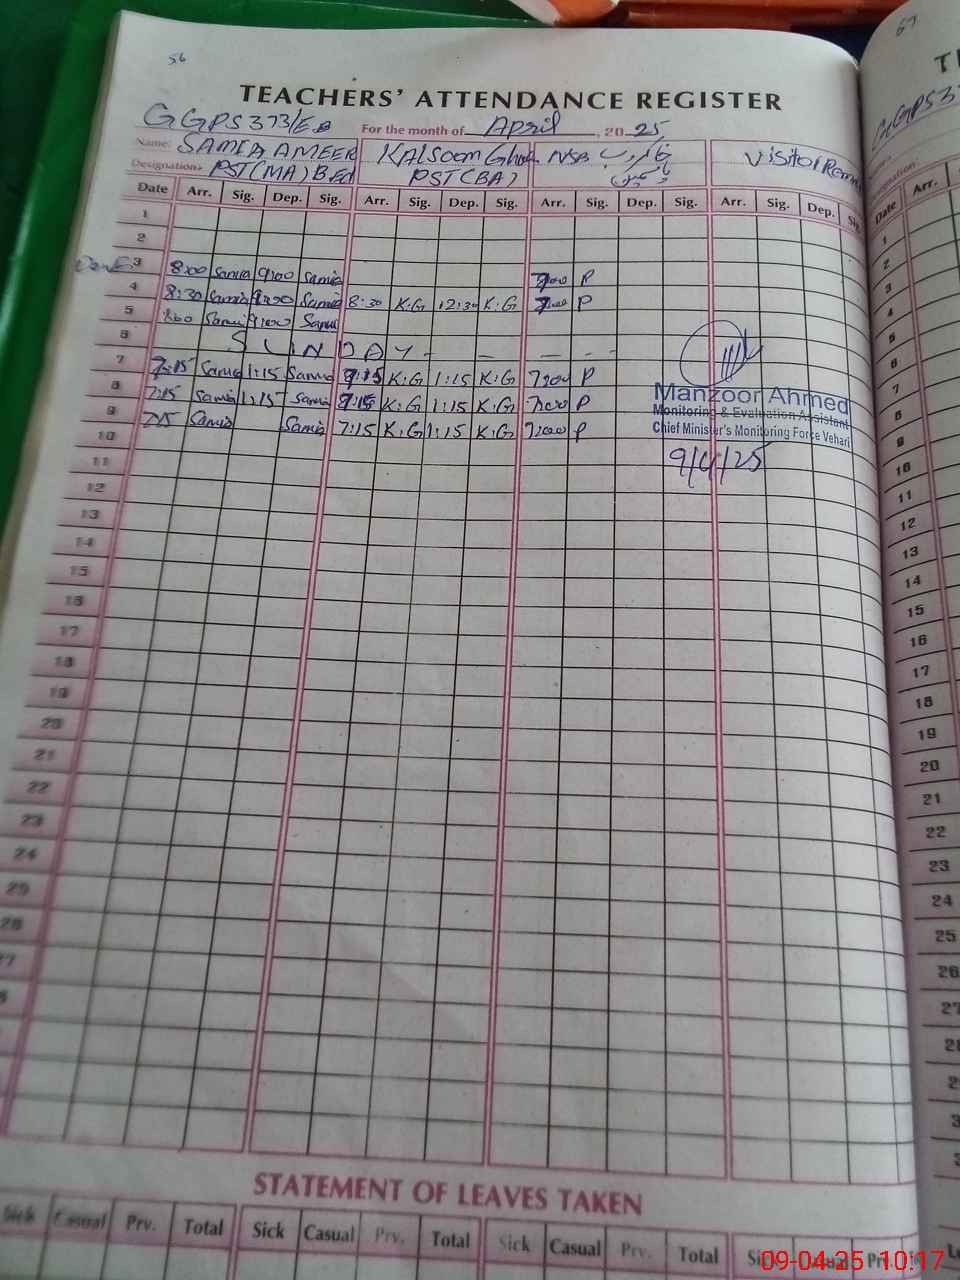 56
TEACHERS' ATTENDANCE REGISTER
GGPS 373/EB For the month of April, 2025
Name: SAMIA AMEER KALSOOM NSB Visitor
Designation: PST(MA) B.Ed PST(BA)
Date Arr. Sig. Dep. Sig. Arr. Sig. Dep. Sig. Arr. Sig. Dep. Sig. Arr. Sig. Dep.
1
2
3 8:00 Samia 9:00 Samia P
4 8:30 Samia Samia 8:30 K.G 12:30 K.G P
5 Samia Samia
6 S U N D A Y - - - - -
7 7:15 Samia 1:15 Samia 7:15 K.G 1:15 K.G 7:00 P
8 7:15 Samia 1:15 Samia 7:15 K.G 1:15 K.G 7:00 P
9 7:15 Samia Samia 7:15 K.G 1:15 K.G 7:00 P
10
Manzoor Ahmed
Monitoring & Evaluation Assistant
Chief Minister's Monitoring Force Vehari
9/4/25
11
12
13
14
15
16
17
18
19
20
21
22
23
24
25
26
STATEMENT OF LEAVES TAKEN
Sick Casual Prv. Total Sick Casual Prv. Total Sick Casual Prv. Total
57
GGPS 373
Date Arr.
1
2
3
4
5
6
7
8
9
10
11
12
13
14
15
16
17
18
19
20
21
22
23
24
25
26
27
09-04-25 10:17